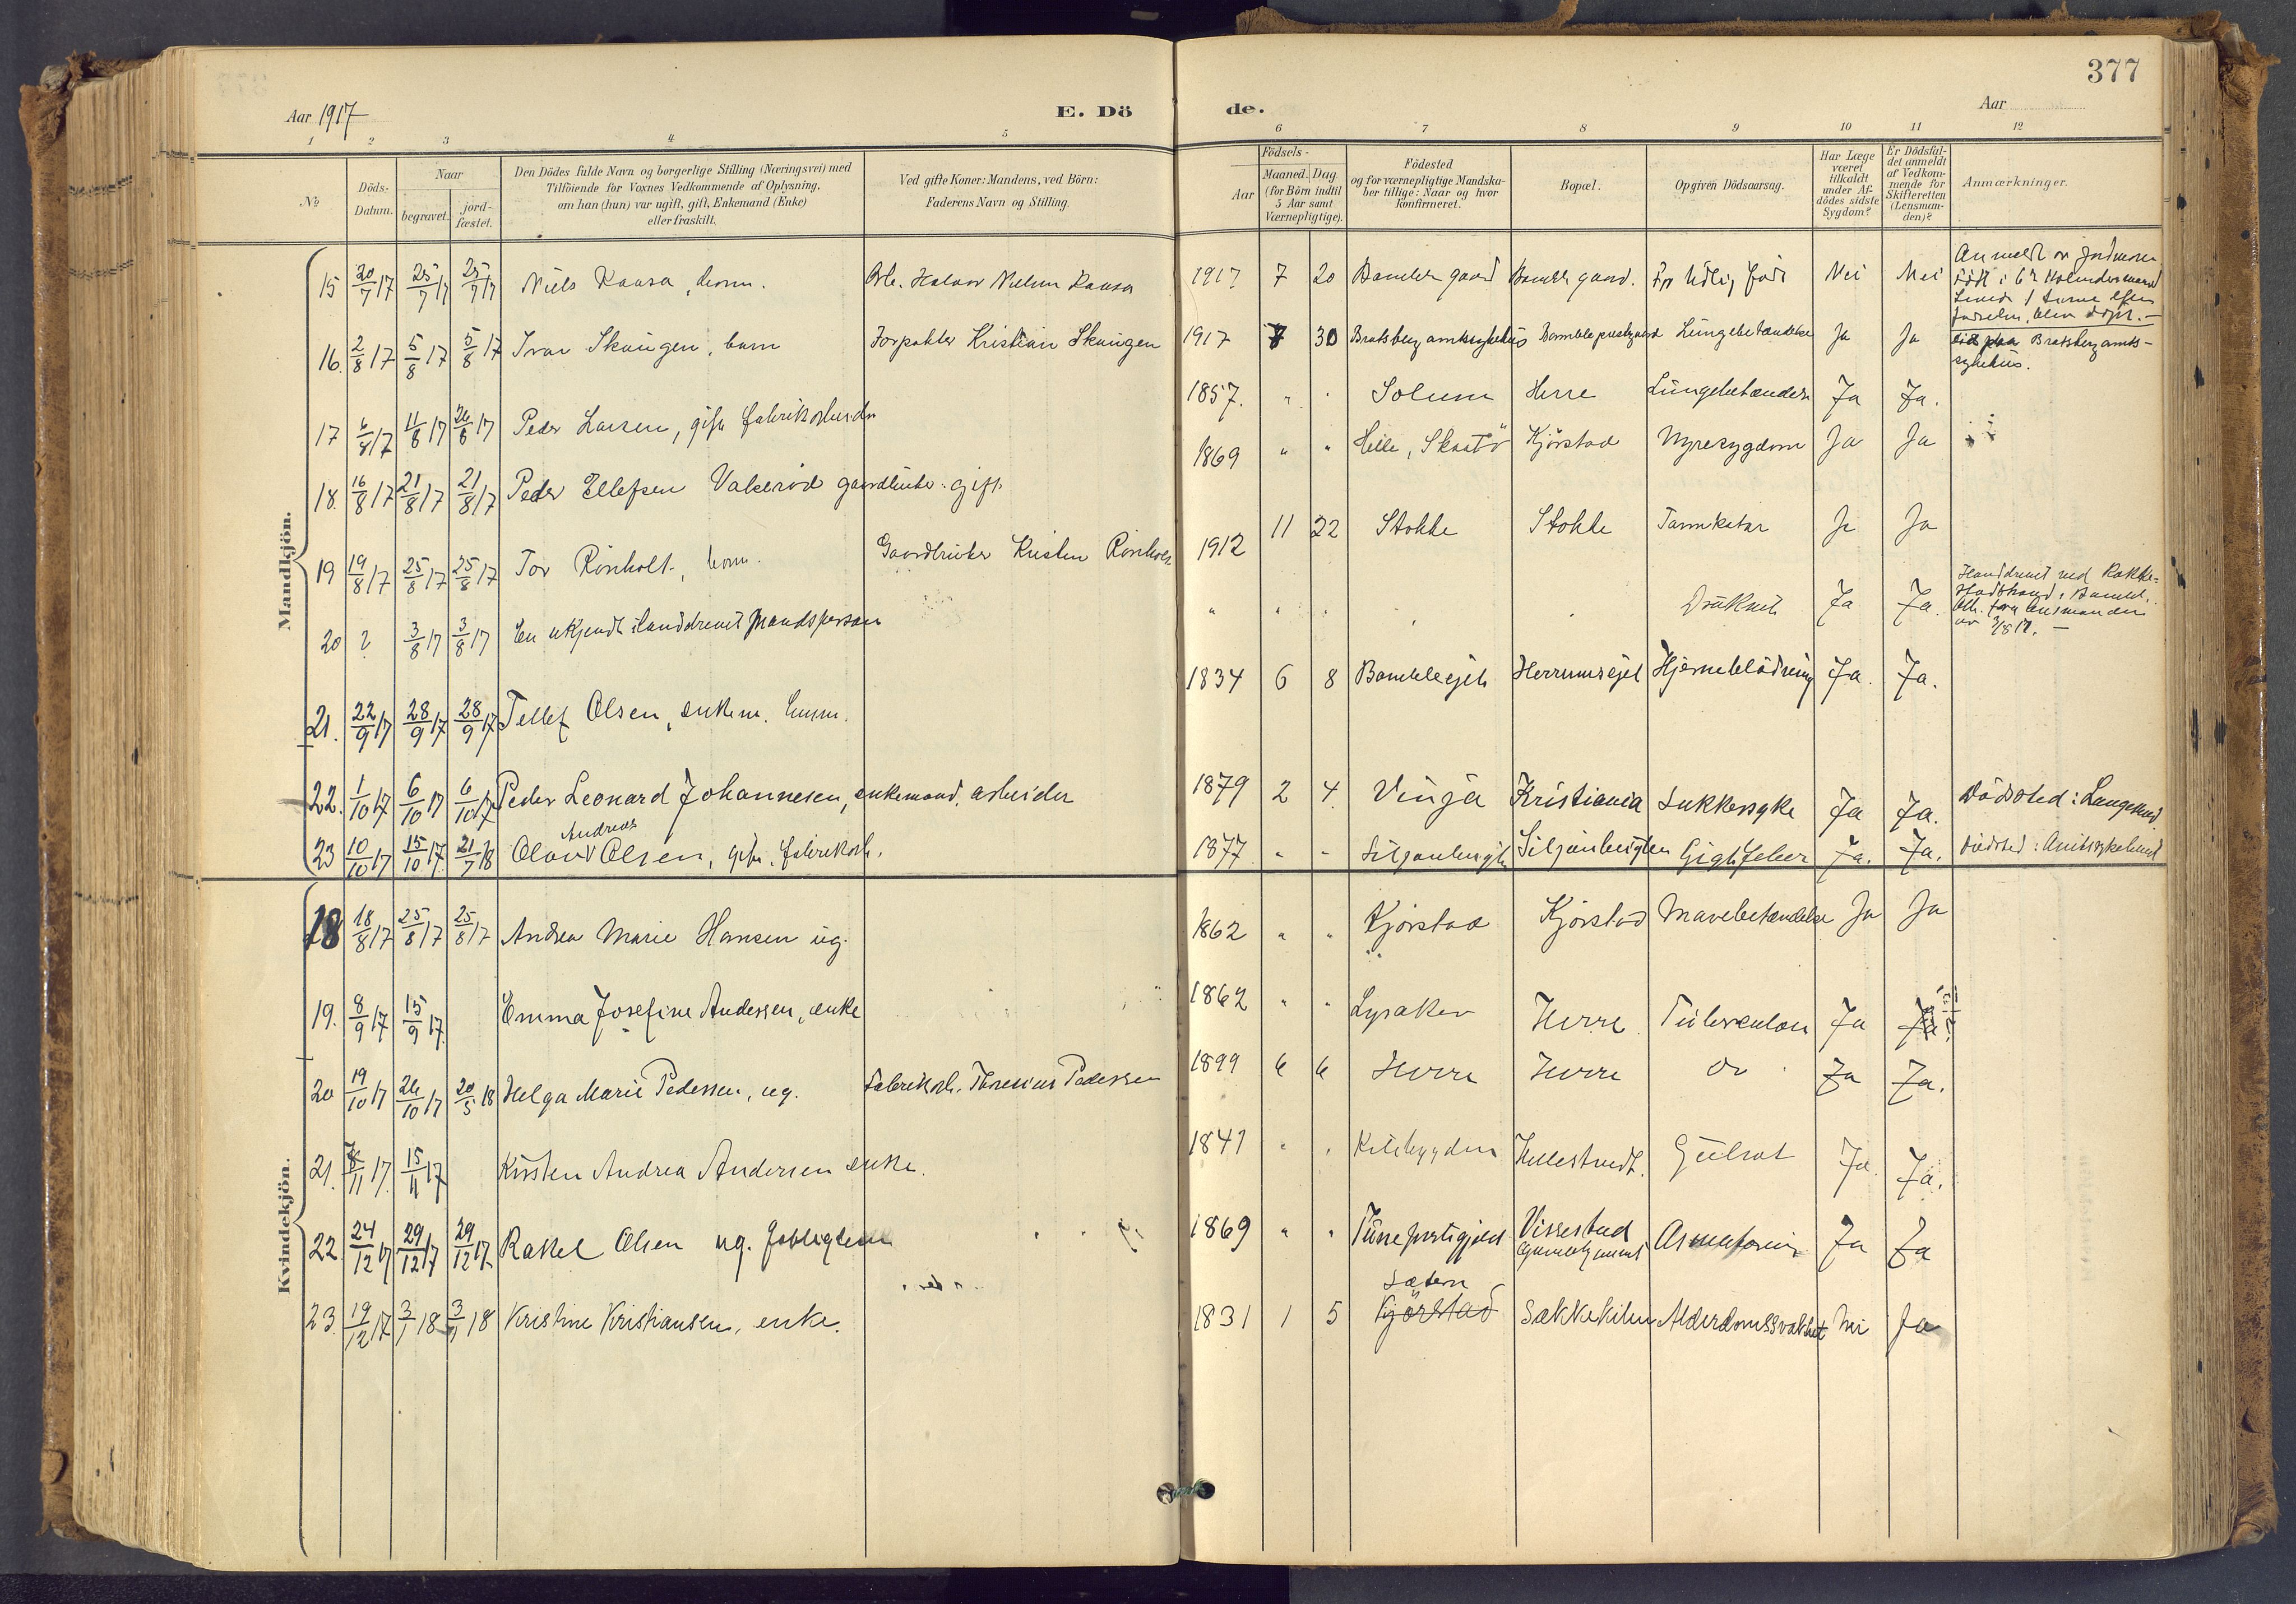 377
Aar 1917
E. Dö
de.
Aar
1 2 3 4 5 6 7 8 9 10 11 12
№
Döds-Datum.
Naar
begravet.
jord-fæstet.
Den Dödes fulde Navn og borgerlige Stilling (Næringsvei) med
Tilföiende for Voxnes Vedkommende af Oplysning,
om han (hun) var ugift, gift, Enkemand (Enke)
eller fraskilt.
Ved gifte Koner: Mandens, ved Börn:
Faderens Navn og Stilling.
Födsels-
Aar
Maaned. Dag
(for Börn indtil
5 Aar samt
Værnepligtige).
Födested
og for værnepligtige Mandska-
ber tillige: Naar og hvor
Konfirmeret.
Bopæl.
Opgiven Dödsaarsag.
Har Læge
været
tilkaldt
under Af-
dödes sidste
Sygdom?
Er Dödsfal-
det anmeldt
af Vedkom-
mende for
Skifteretten
(Lensman-
den)?
Anmærkninger.
Mandkjön.
15 20/7 17 25/7 17 25/7 17 Niels Kaasa, Halvor Nielsen Kaasa 1917 7 20 Bamble gaard Bamble gaard. Nei Nei
16. 2/8 17 5/8 17 5/8 17 Ivar Skaugen, barn Forpakter Kristian Skaugen 1917 7 30 Bratsberg amtssykehus Bamble prestegaard Lungebetændelse Ja Ja Bratsberg amts-
sykehus.
17 6/8 17 11/8 17 26/8 17 Peder Larsen, gift fabrikarbeider 1857. " " Solum Herre Lungebetændelse Ja Ja.
18. 16/8 17 21/8 17 21/8 17 Peder Ellefsen Valleröd gaardbruker. gift. 1869 " " Helle, Skaatö Kjörstad Nyresygdom Ja Ja
19 19/8 17 25/8 17 25/8 17 Tor Rönholt, barn. Gaardbruker Kristen Rönholt 1912 11 22 Stokke Stokke Tarmkatar Ja Ja
20 ? 3/8 17 3/8 17 En ukjendt ilanddrevet Mandsperson " " " Druknet Ja Ja. Ilanddrevet ved
lensmanden
av 3/8 17. —
21. 22/9 17 28/9 17 28/9 17 Tellef Olsen, enkem. 1834 6 8 Bamble Hjerneblödning Ja. Ja.
22. 1/10 17 6/10 17 6/10 17 Peder Leonard Johannesen, enkemand, arbeider 1879 2 4 Vinja Kristiania Sukkersyke Ja Ja. Dödssted: Langesund
23 10/10 17 15/10 17 21/7 18 Olav Andreas Olsen, gift, fabrikarb. 1877 " " Siljanbergli Gigtfeber Ja. Ja. Dödsted: Amtssykehuset
Kvindekjön.
18 18/8 17 25/8 17 25/8 17 Andrea Marie Hansen ug. 1862 " " Kjörstad Kjörstad Mavebetændelse Ja Ja
19. 8/9 17 15/9 17. Emma Josefine Andersen, enke 1862 " " Lysaker Herre Tuberculose Ja
20 19/10 17 26/10 17 20/5 18 Helga Marie Pedersen, ug. Fabrikarb. Pedersen 1899 6 6 Herre Herre do Ja Ja.
21. 11 17. 15/11 17 Kirsten Andrea Andersen enke. 1841 " " Kilebygden Hellestvedt. Gulsot Ja. Ja.
22. 24/12 17 29/12 17 29/12 17. Rakel Olsen ug. 1869 " " Tune prestigjeld Vissestad Ja Ja
23. 19/12 17 3/1 18 3/1 18 Kristine Kristiansen, enke. 1831 1 5 Sætern Kjörstad Sækkekilen Alderdomssvakhet Nei Ja